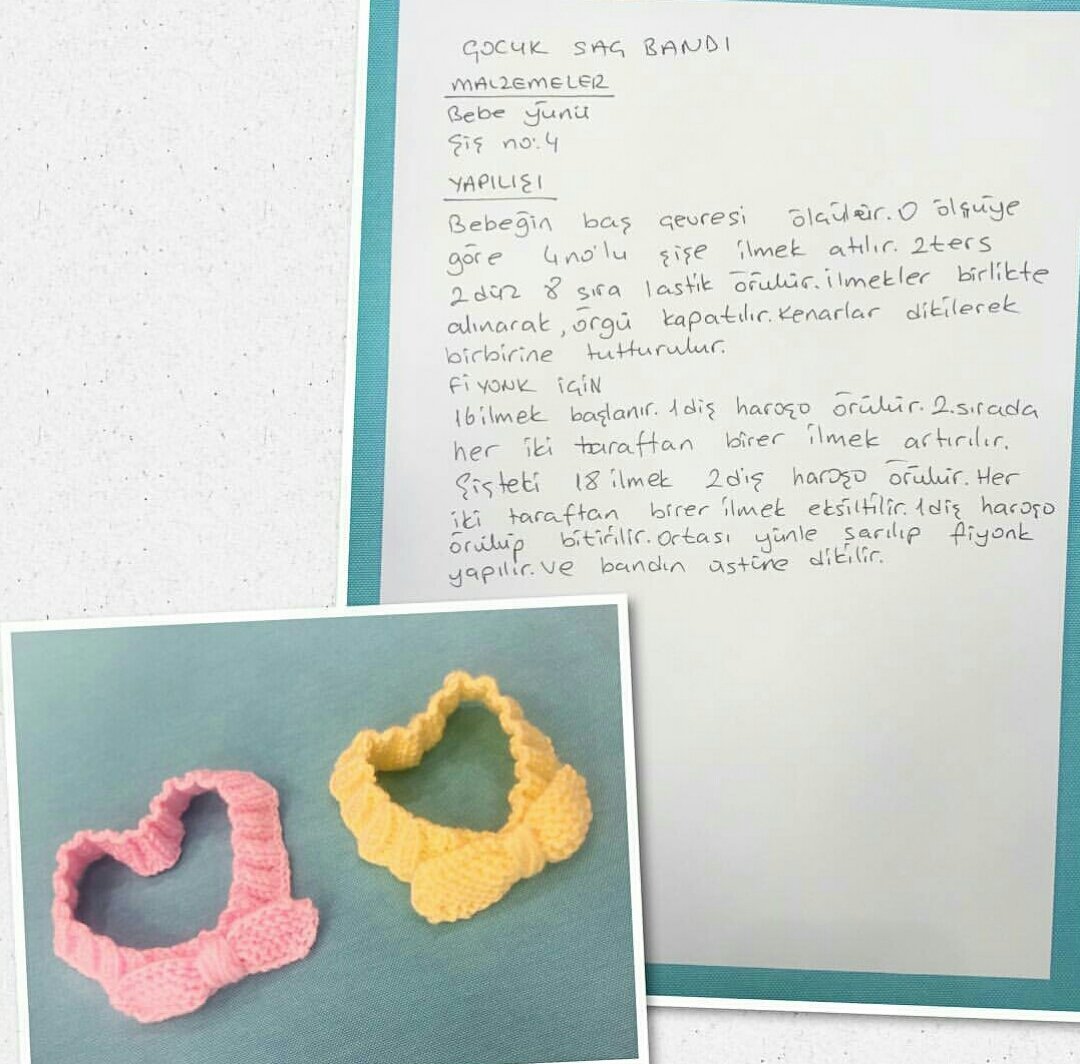 ÇOCUK SAÇ BANDI
MALZEMELER
Bebe yünü
Şiş no:4
YAPILIŞI
Bebeğin baş çevresi ölçülür. O ölçüye
göre 4no'lu şişe ilmek atılır. 2ters
2düz 8 sıra lastik örülür. ilmekler birlikte
alınarak, örgü kapatılır. Kenarlar dikilerek
birbirine tutturulur.
FİYONK İÇİN
16ilmek başlanır. 1diş haroşo örülür. 2.sırada
her iki taraftan birer ilmek artırılır.
Şişteki 18 ilmek 2diş haroşo örülür. Her
iki taraftan birer ilmek eksiltilir. 1diş haroşo
örülüp bitirilir. Ortası yünle sarılıp fiyonk
yapılır. ve bandın üstüne dikilir.